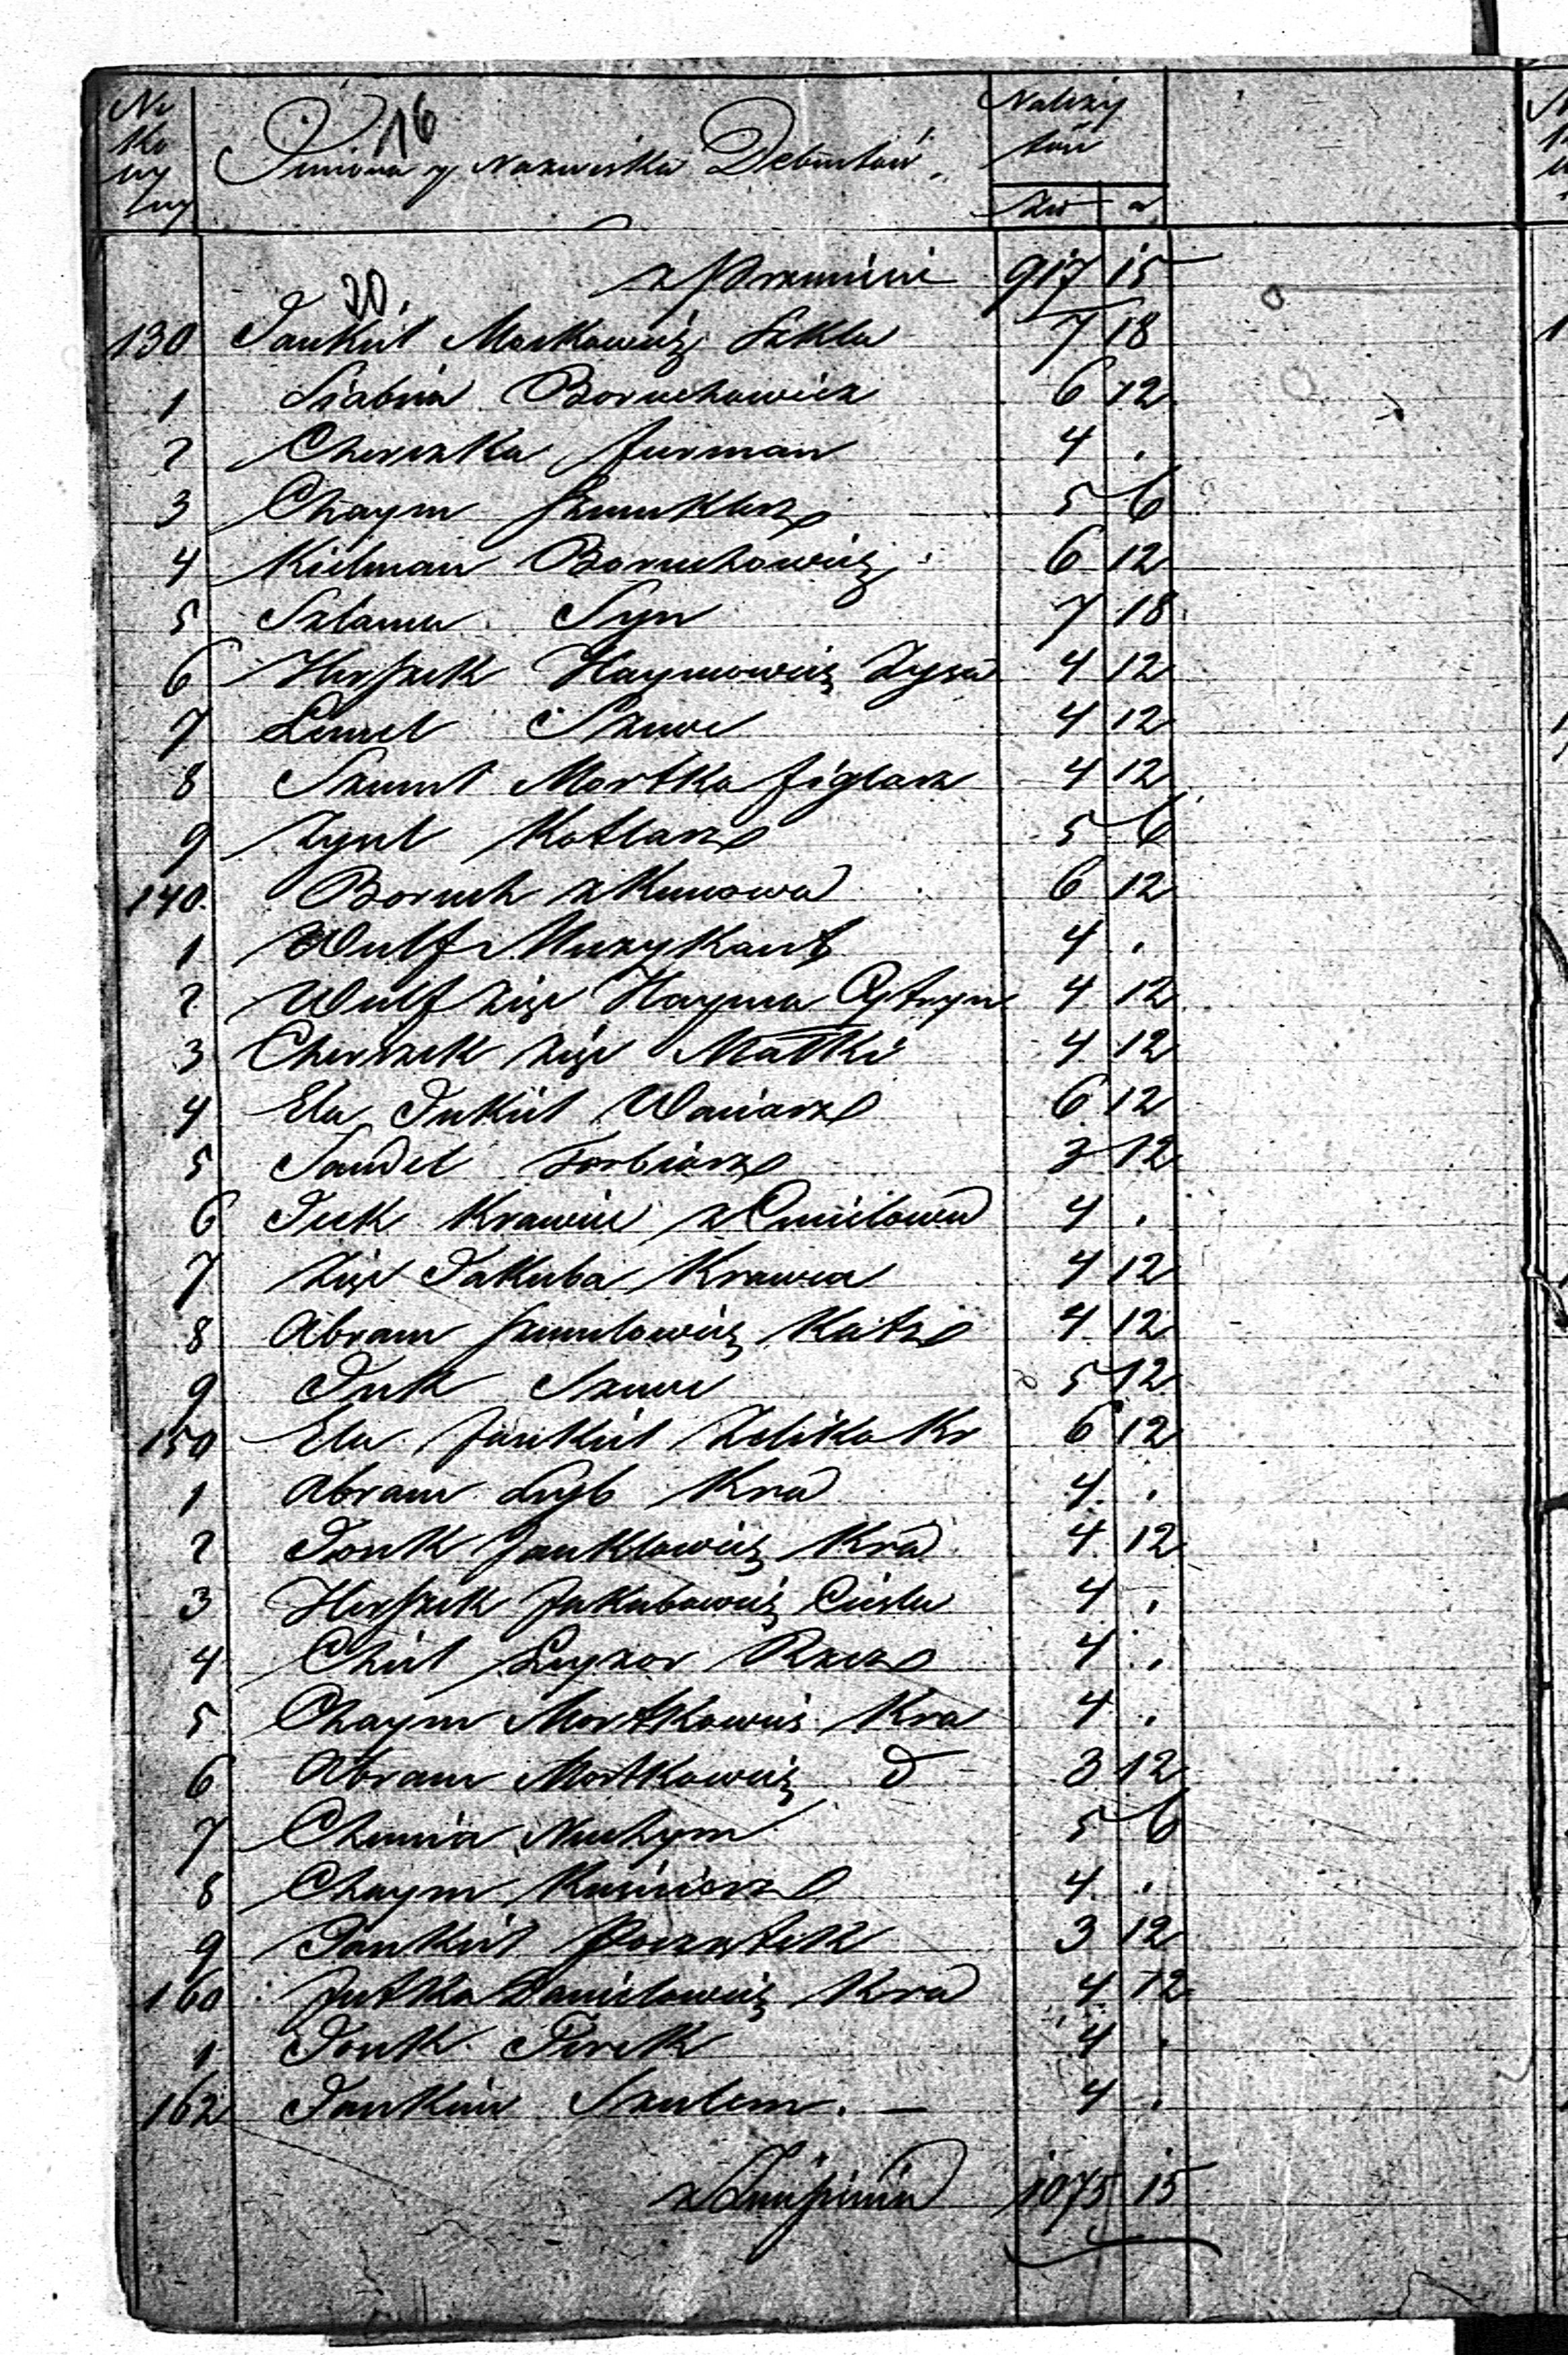 16
No
ko
ny
tny
Imiona y Nazwiska Debentów
Należy
tość
Zło gr
20.
z Przeniesi 917 15
130 Jankiel Moskowicz Szkla 7 18
1 Siabsia Boruchowicz 6 12
2 Cherszka furman 4 .
3 Chaym Szmuklerz 5 6
4 Kielman Boruchowicz 6 12
5 Szlama Syn 7 18
6 Herszek Haymowicz Zysa 4 12
7 Lemel Szwec 4 12
8 Szmul Mortka figlarz 4 12
9 Zysel Kotlarz 5 6
140 Boruch z Kunowa 6 12
1 Wulf Muzykant 4 .
2 Wulf Zięc Hayma Cytryn 4 12
3 Cherszek Zięc Matki 4 12
4 Ela Jukiel Woniarz 6 12
5 Jandel Farbiarz 3 12
6 Icek Krawiec z Cmielowa 4 .
7 Zięc Jakuba Krawca 4 12
8 Abram Szmulowicz Katz 4 12
9 Icek Szwec 5 12
150 Ela Jankiel Zelika Kr 6 12
1 Abram Leyb Kra 4 .
2 Jonk Janklowicz Kra 4 12
3 Herszek Jakubowicz Ciesla 4 .
4 Chiel Leyzor Rzez 4 .
5 Chaym Mortkowicz Kra 4 .
6 Abram Mortkowicz d 3 12
7 Chemia Nuchym 5 6
8 Chaym Kuśnierz 4 .
9 Jankiel Poczatek 3 12
160 Jutka Danielowicz Kra 4 12
1 Jonk Firek 4 .
162 Jankiew Szulem. — 4 .
1075 15